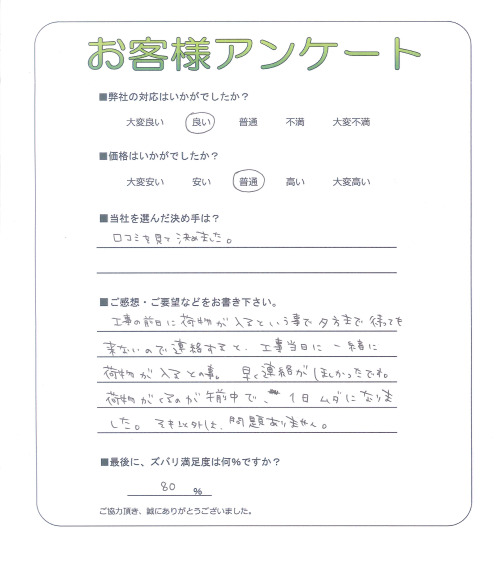 お客様アンケート
■弊社の対応はいかがでしたか？
大変良い 良い 普通 不満 大変不満
■価格はいかがでしたか？
大変安い 安い 普通 高い 大変高い
■当社を選んだ決め手は？
口コミを見て決めました。
■ご感想・ご要望などをお書き下さい。
工事の前日に荷物が入るという事で夕方まで待っても
来ないので連絡すると、工事当日に一緒に
荷物が入るとの事。早く連絡がほしかったですね。
荷物がくるのが午前中で、1日ムダになりま
した。それ以外は、問題ありません。
■最後に、ズバリ満足度は何%ですか？
80 %
ご協力頂き、誠にありがとうございました。